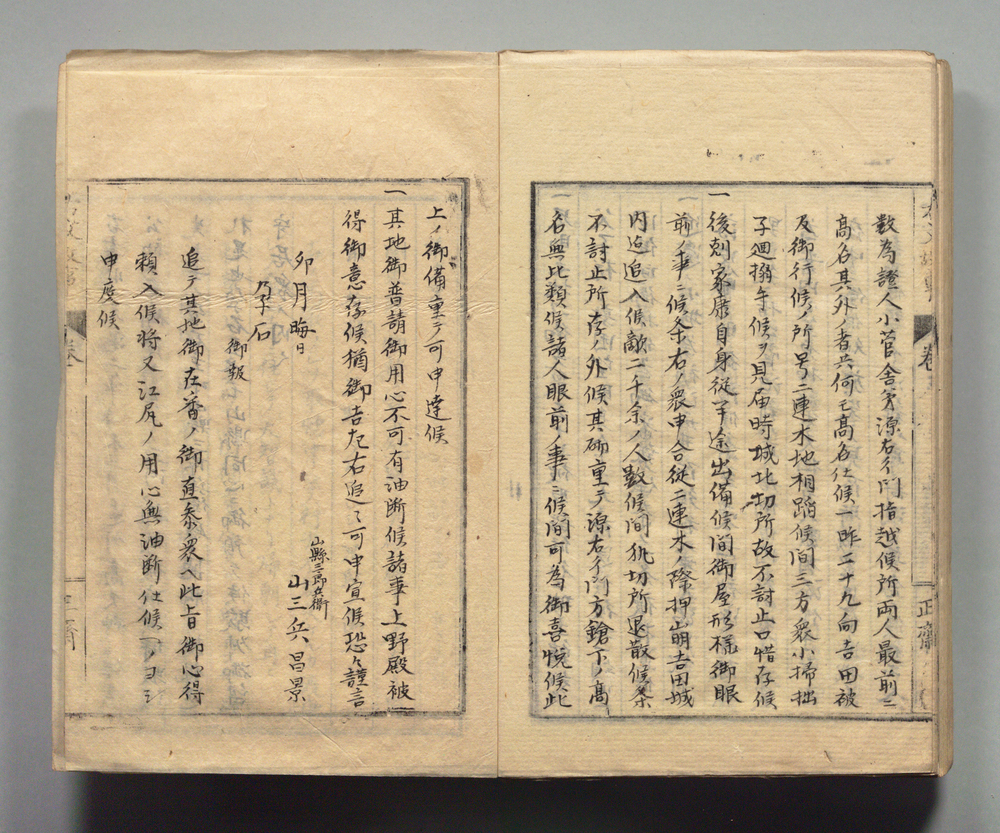 数為證人小菅舎弟源右衛門指越候所両人最前ニ
高名其外ノ者共何モ高名仕候一昨二十九向吉田被
及御行候ノ所号二連木地相蹈候間三方衆小掃拙
子廻搦手候ヲ見届時城北切所故不討止口惜存候
一後刻家康自身従半途出備候間御屋形様御眼
前ノ事ニ候条右ノ衆申合従二連木ノ際押崩吉田城
内迄追入候敵二千余ノ人数候間切所退散候条
不討止所存ノ外候其砌重テ源右衛門方鎗下ノ高
名無比類候諸人眼前ノ事ニ候間可為御喜悦候此
上ノ御備重テ可申達候
一其地御普請御用心不可有油断候諸事上野殿被
得御意存候猶御吉左右追々可申宣候恐々謹言
山縣三郎兵衛
卯月晦日 山三兵昌景
孕石 御報
追テ其地御在番ノ御直参衆ヘ此旨御心得
頼入候将又江尻ノ用心無油断仕候ヘノヨシ
申度候